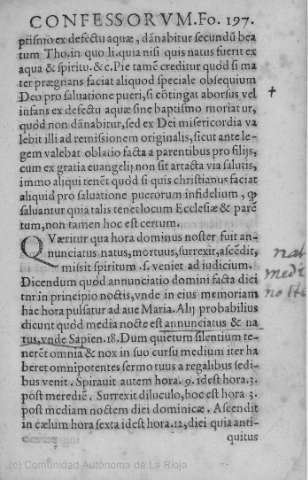 CONFESSORVM. Fo. 197.
ptismo ex defectu aquæ, dānabitur secundū bea
tum Tho. in quo li. quia nisi quis natus fuerit ex
aqua & spiritu. &c. Pie tamē creditur quòd si ma
ter prægnans faciat aliquod speciale obsequium
Deo pro saluatione pueri, si cōtingat aborsus vel
infans ex defectu aquæ sine baptismo moriatur,
quòd non dānabitur, sed ex Dei misericordia va
lebit illi ad remissionem originalis, sicut ante le-
gem valebat oblatio facta a parentibus pro filijs,
cum ex gratia euangelij non sit arctata via salutis,
immo aliqui tenēt quòd si quis christianus faciat
aliquid pro saluatione puerorum infidelium, ꝙ
saluantur quia talis tenet locum Ecclesiæ & parē
tum, non tamen hoc est certum.
QVæritur qua hora dominus noster fuit an-
nunciatus natus, mortuus, surrexit, ascēdit,
misit spiritum. s. veniet ad iudicium.
Dicendum quòd annunciatio domini facta dici
tur in principio noctis, vnde in eius memoriam
hac hora pulsatur ad aue Maria. Alij probabilius
dicunt quòd media nocte est annunciatus & na
tus, vnde Sapien. 18. Dum quietum silentium te-
nerēt omnia & nox in suo cursu medium iter ha
beret omnipotentes sermo tuus a regalibus sedi-
bus venit. Spirauit autem hora. 9. idest hora. 3.
post meredie. Surrexit diluculo, hoc est hora 3.
post mediam noctem diei dominicæ. Ascendit
in cælum hora sexta idest hora. 12, diei quia anti-
quitus
nat
medi
noste
(c) Comunidad Autónoma de La Rioja